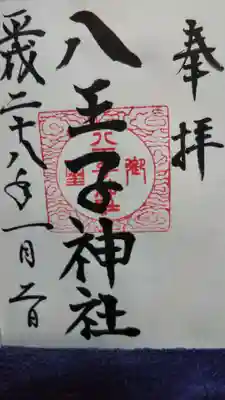 奉拝
八王子神社
平成二十八年一月二日